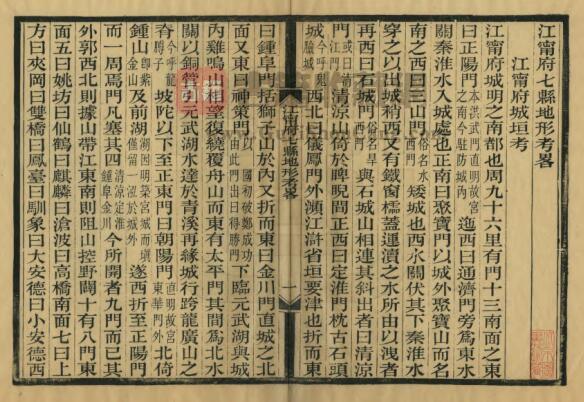 江甯府七縣地形考畧
江甯府城垣考
江甯府城明之南都也周九十六里有門十三南面之東
曰正陽門本洪武門直明故宮之南今駐防城內迤西曰通濟門旁爲東水
關秦淮水入城處也正南曰聚寶門以城外聚寶山而名
南之西曰三山門俗名水西門矮城也西水關伏其下秦淮水
穿之以出城稍西又有鐵窗櫺蓋運瀆之水所由以洩者
再西曰石城門俗名旱西門與石城山相連其斜出者曰清涼
門或曰清江門清涼山倚於睥睨間正西曰定淮門枕古石頭
城今呼鬼臉城西北曰儀鳳門外瀕江滸省垣要津也折而東
江甯府七縣地形考畧
一
曰鍾阜門括獅子山於內又折而東曰金川門直城之北
面又東曰神策門國初破鄭成功以由此門出曰得勝門下臨元武湖與城
內雞鳴山相望復繞覆舟山而東有太平門其間爲北水
關以銅管引元武湖水達於青溪再緣城行跨龍廣山之
脊今呼龍膊子坡陀以下至正東門曰朝陽門直明故宮東華門外北倚
鍾山卽紫金山及前湖湖因明築宮城而塡僅留一泓於城外遂西折至正陽門
而一周焉門凡塞其四清涼定淮鍾阜金川今所開者九門而已其
外郭西北則據山帶江東南則阻山控野闢十有八門東
面五曰姚坊曰仙鶴曰麒麟曰滄波曰高橋南面七曰上
方曰夾岡曰雙橋曰鳳臺曰馴象曰大安德曰小安德西